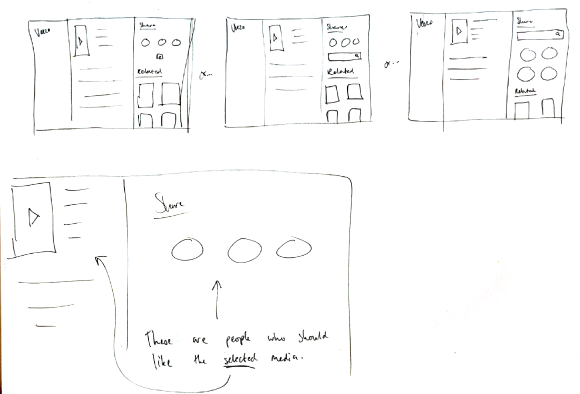 Share
Related
or...
Share
Related
or...
Share
Related
Share
These are people who should
like the selected media.